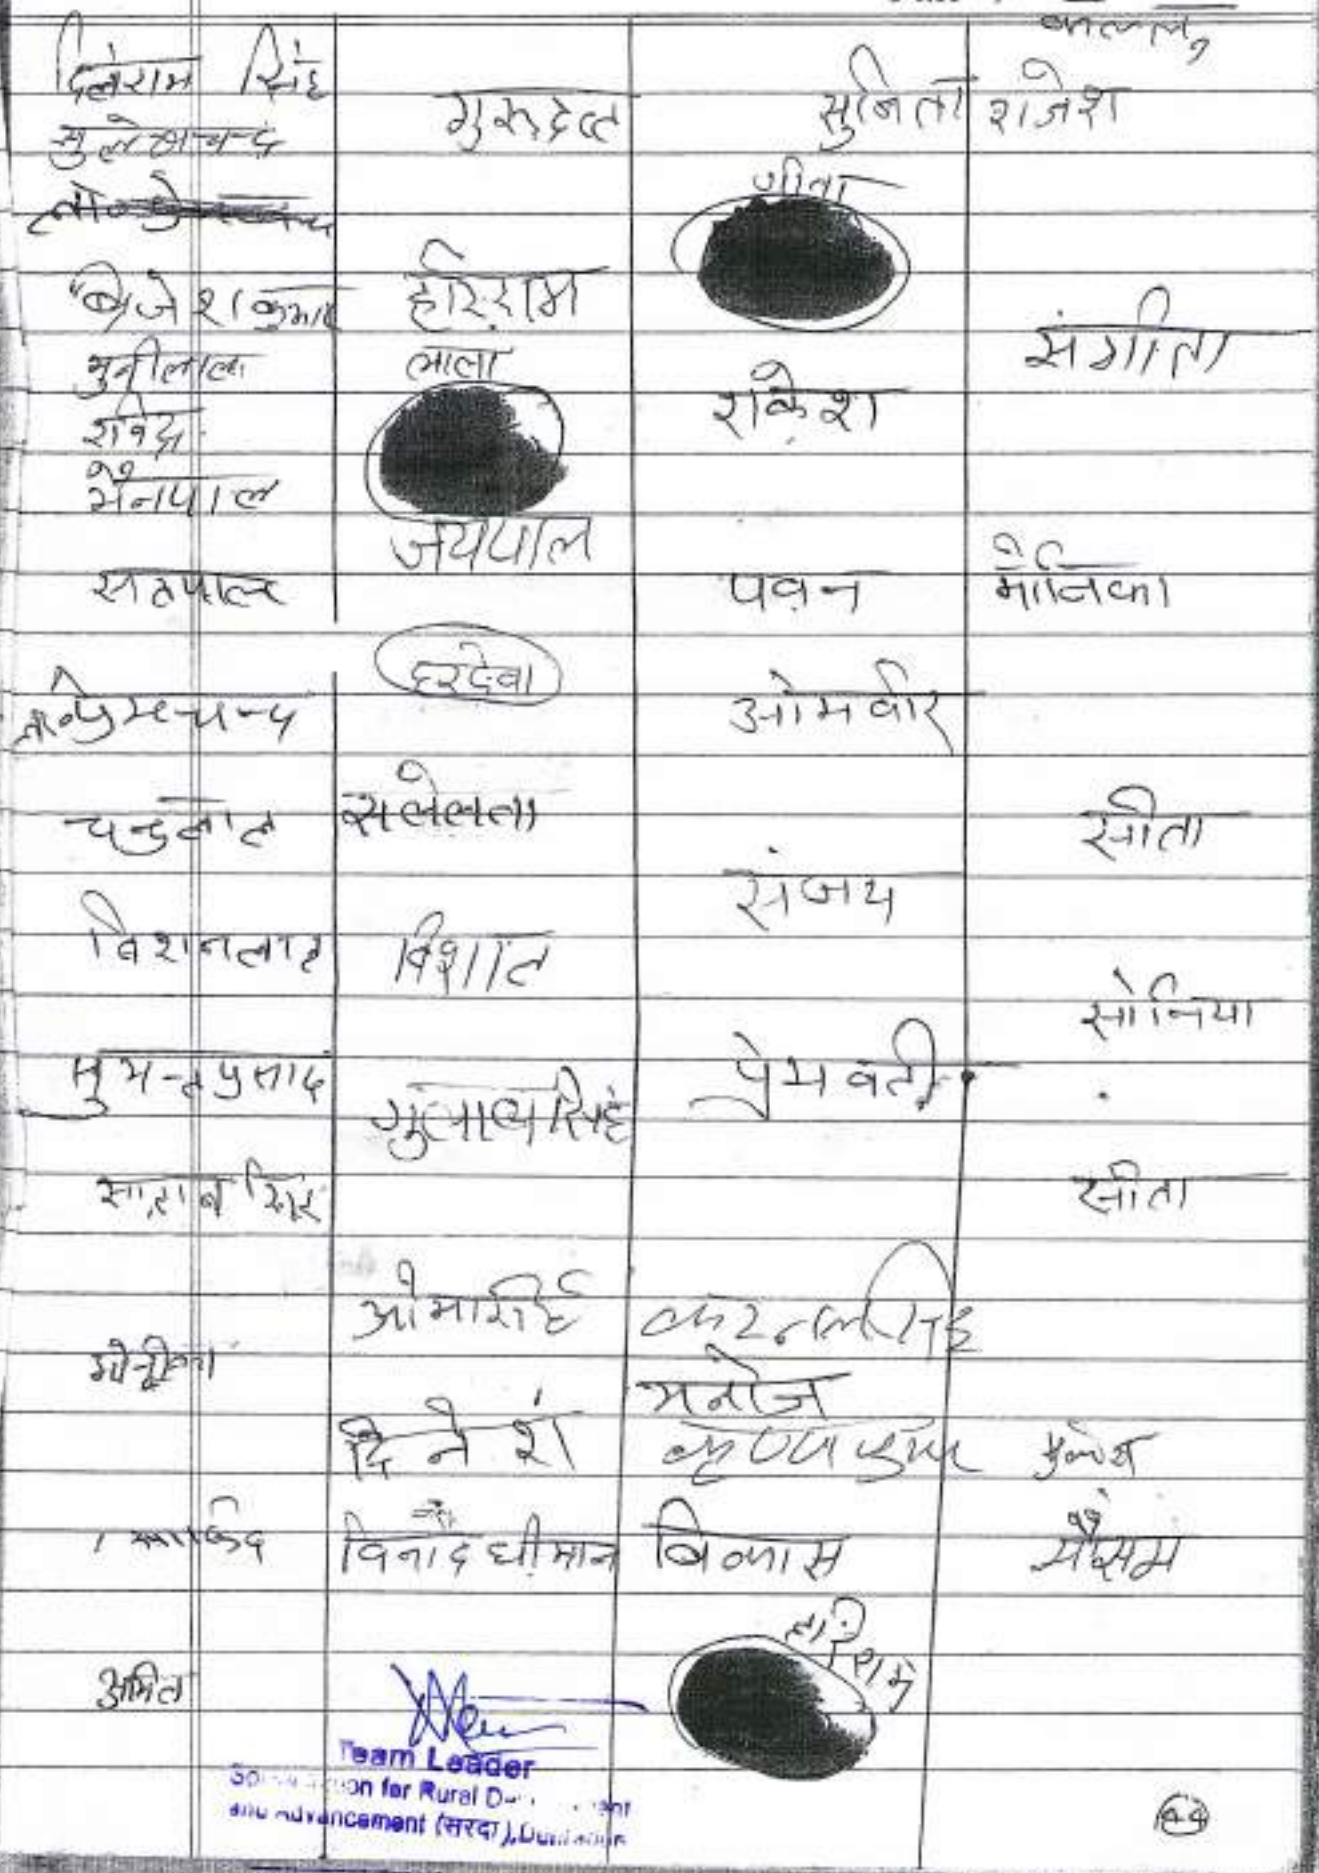 दिलेराम सिंह
सुलेखचन्द
बिजेश कुमार
मुनीलाल
रविन्द्र
मैनपाल
सतपाल
ला० प्रेमचन्द
चन्दनलाल
बिशनलाल
सुमन्त प्रसाद
अमित
गुरूदत्त
हरिराम
लाला
जयपाल
हरदेवा
सलेलता
विशाल
गुलाब सिंह
ओमसिंह
दिनेश
विनोद धीमान
सुनिता
गीता
राकेश
पवन
ओमवीर
संजय
प्रेमवती
करनल सिंह
मनोज
विकास
हरिराम
राजेश
संगीता
मोनिका
सीता
सोनिया
सीता
Team Leader
for Rural
and Advancement (सरदा),
44